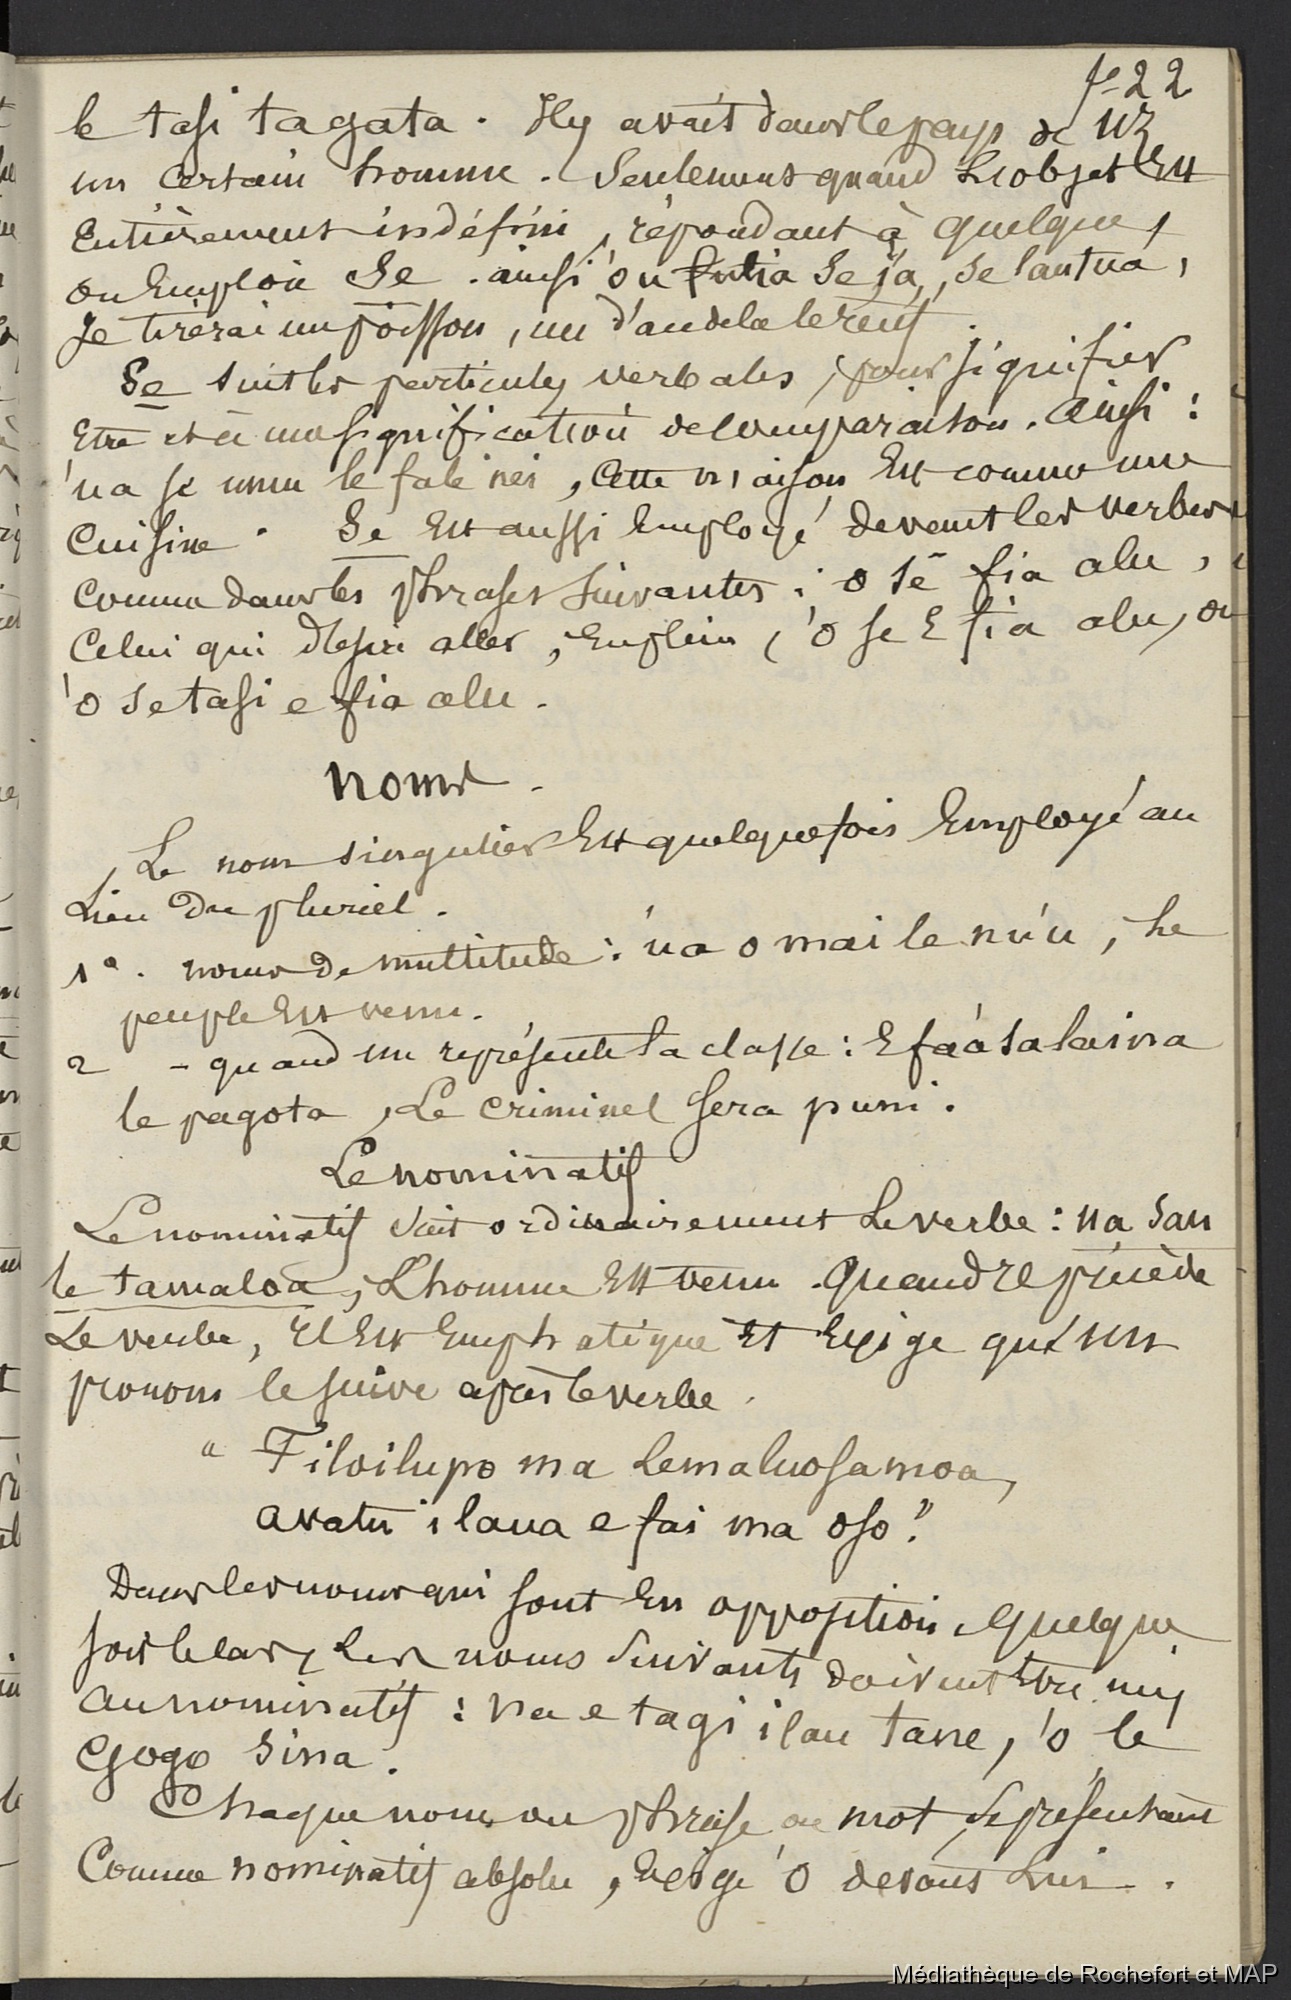 fo 22
le tasi tagata. Il y avait dans le pays de UZ
un certain homme. Seulement quand l'objet est
entièrement indéfini, répondant à quelque,
on emploie se. ainsi 'ou futia se i'a, se lautua,
je tirerai un poisson, un d'audela le récif.
Se suit les particules verbales, pour signifier
Etre et a une signification de comparaison. Ainsi :
'ua se umu le fale nei, cette maison est comme une
cuisine. Se est aussi employé devant les verbes
comme dans les phrases suivantes : o sē fia alu,
celui qui désire aller, en plein, 'o se E fia alu, ou
'o se tasi e fia alu.
Noms.
Le nom singulier est quelquefois employé au
lieu du pluriel.
1°. noms de multitude : 'ua o mai le nu'u, le
peuple est venu.
2 - quand un représente la classe : E faasalaina
le pagota, Le criminel sera puni.
Le nominatif
Le nominatif suit ordinairement le verbe : na sau
le tamaloa, L'homme est venu. Quand il précède
Le verbe, il est emphatique et exige qu'un
pronom le suive après le verbe.
" Filoilupo ma Lemaluosamoa,
avatu i laua e fai ma oso."
Dans les noms qui sont en apposition, quelque
soit le cas, les noms suivants doivent être mis
au nominatif : na e tagi i lau tane, 'o le
Gogo Sina.
Chaque nom ou phrase ou mot se présentant
comme nominatif absolu, exige 'O devant lui.
Médiathèque de Rochefort et MAP